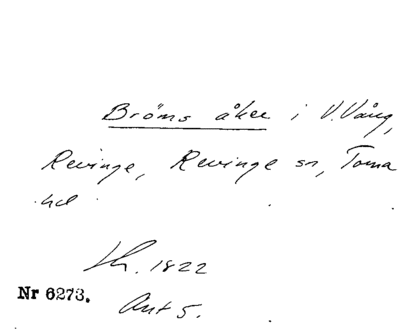 Bröms åker i V. Vång,
Revinge, Revinge sn, Torna
hd
Lh. 1822
Nr 6273.
Akt 5.